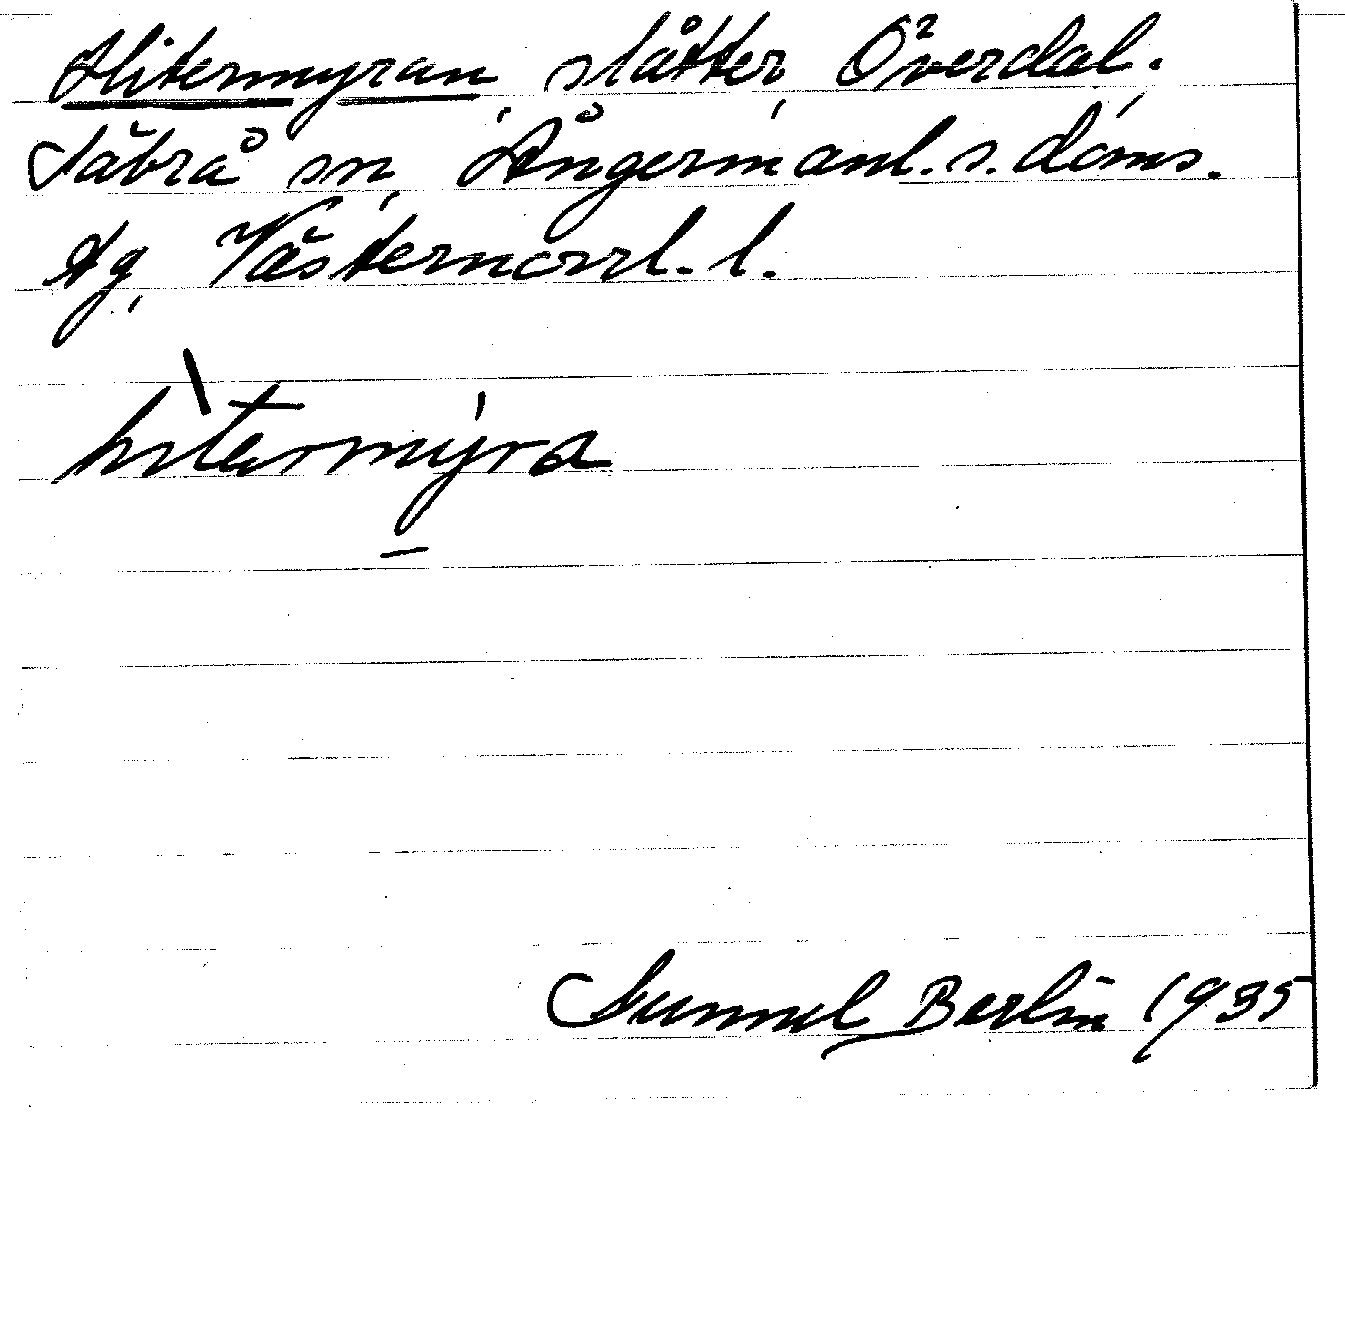 Hitermyran, slåtter, Överdal.
Säbrå sn, Ångermanl. s. doms.
tg, Västernorrl. l.
hìtermýra
Gunnel Berlin 1935